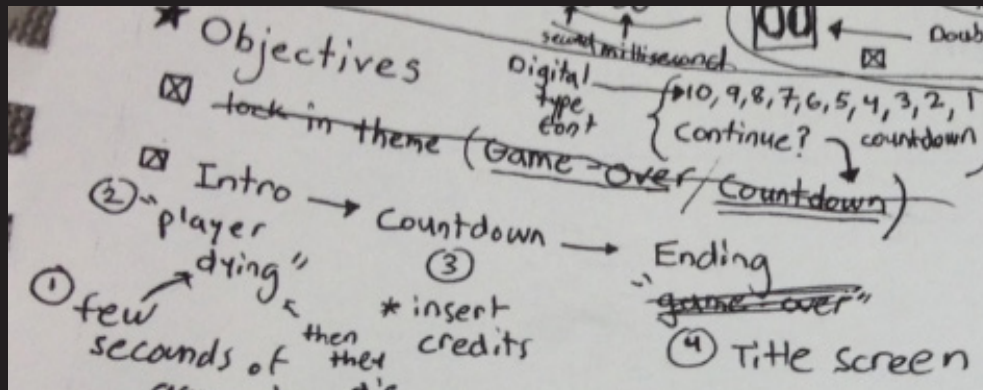 ★ Objectives
second millisecond
Doub
Digital type font
10, 9, 8, 7, 6, 5, 4, 3, 2, 1
Continue? countdown
☒ lock in theme (Game-Over / Countdown)
☒ Intro → Countdown → Ending
② "player dying"
③
"game-over"
① few seconds of
then they
* insert credits
④ Title screen